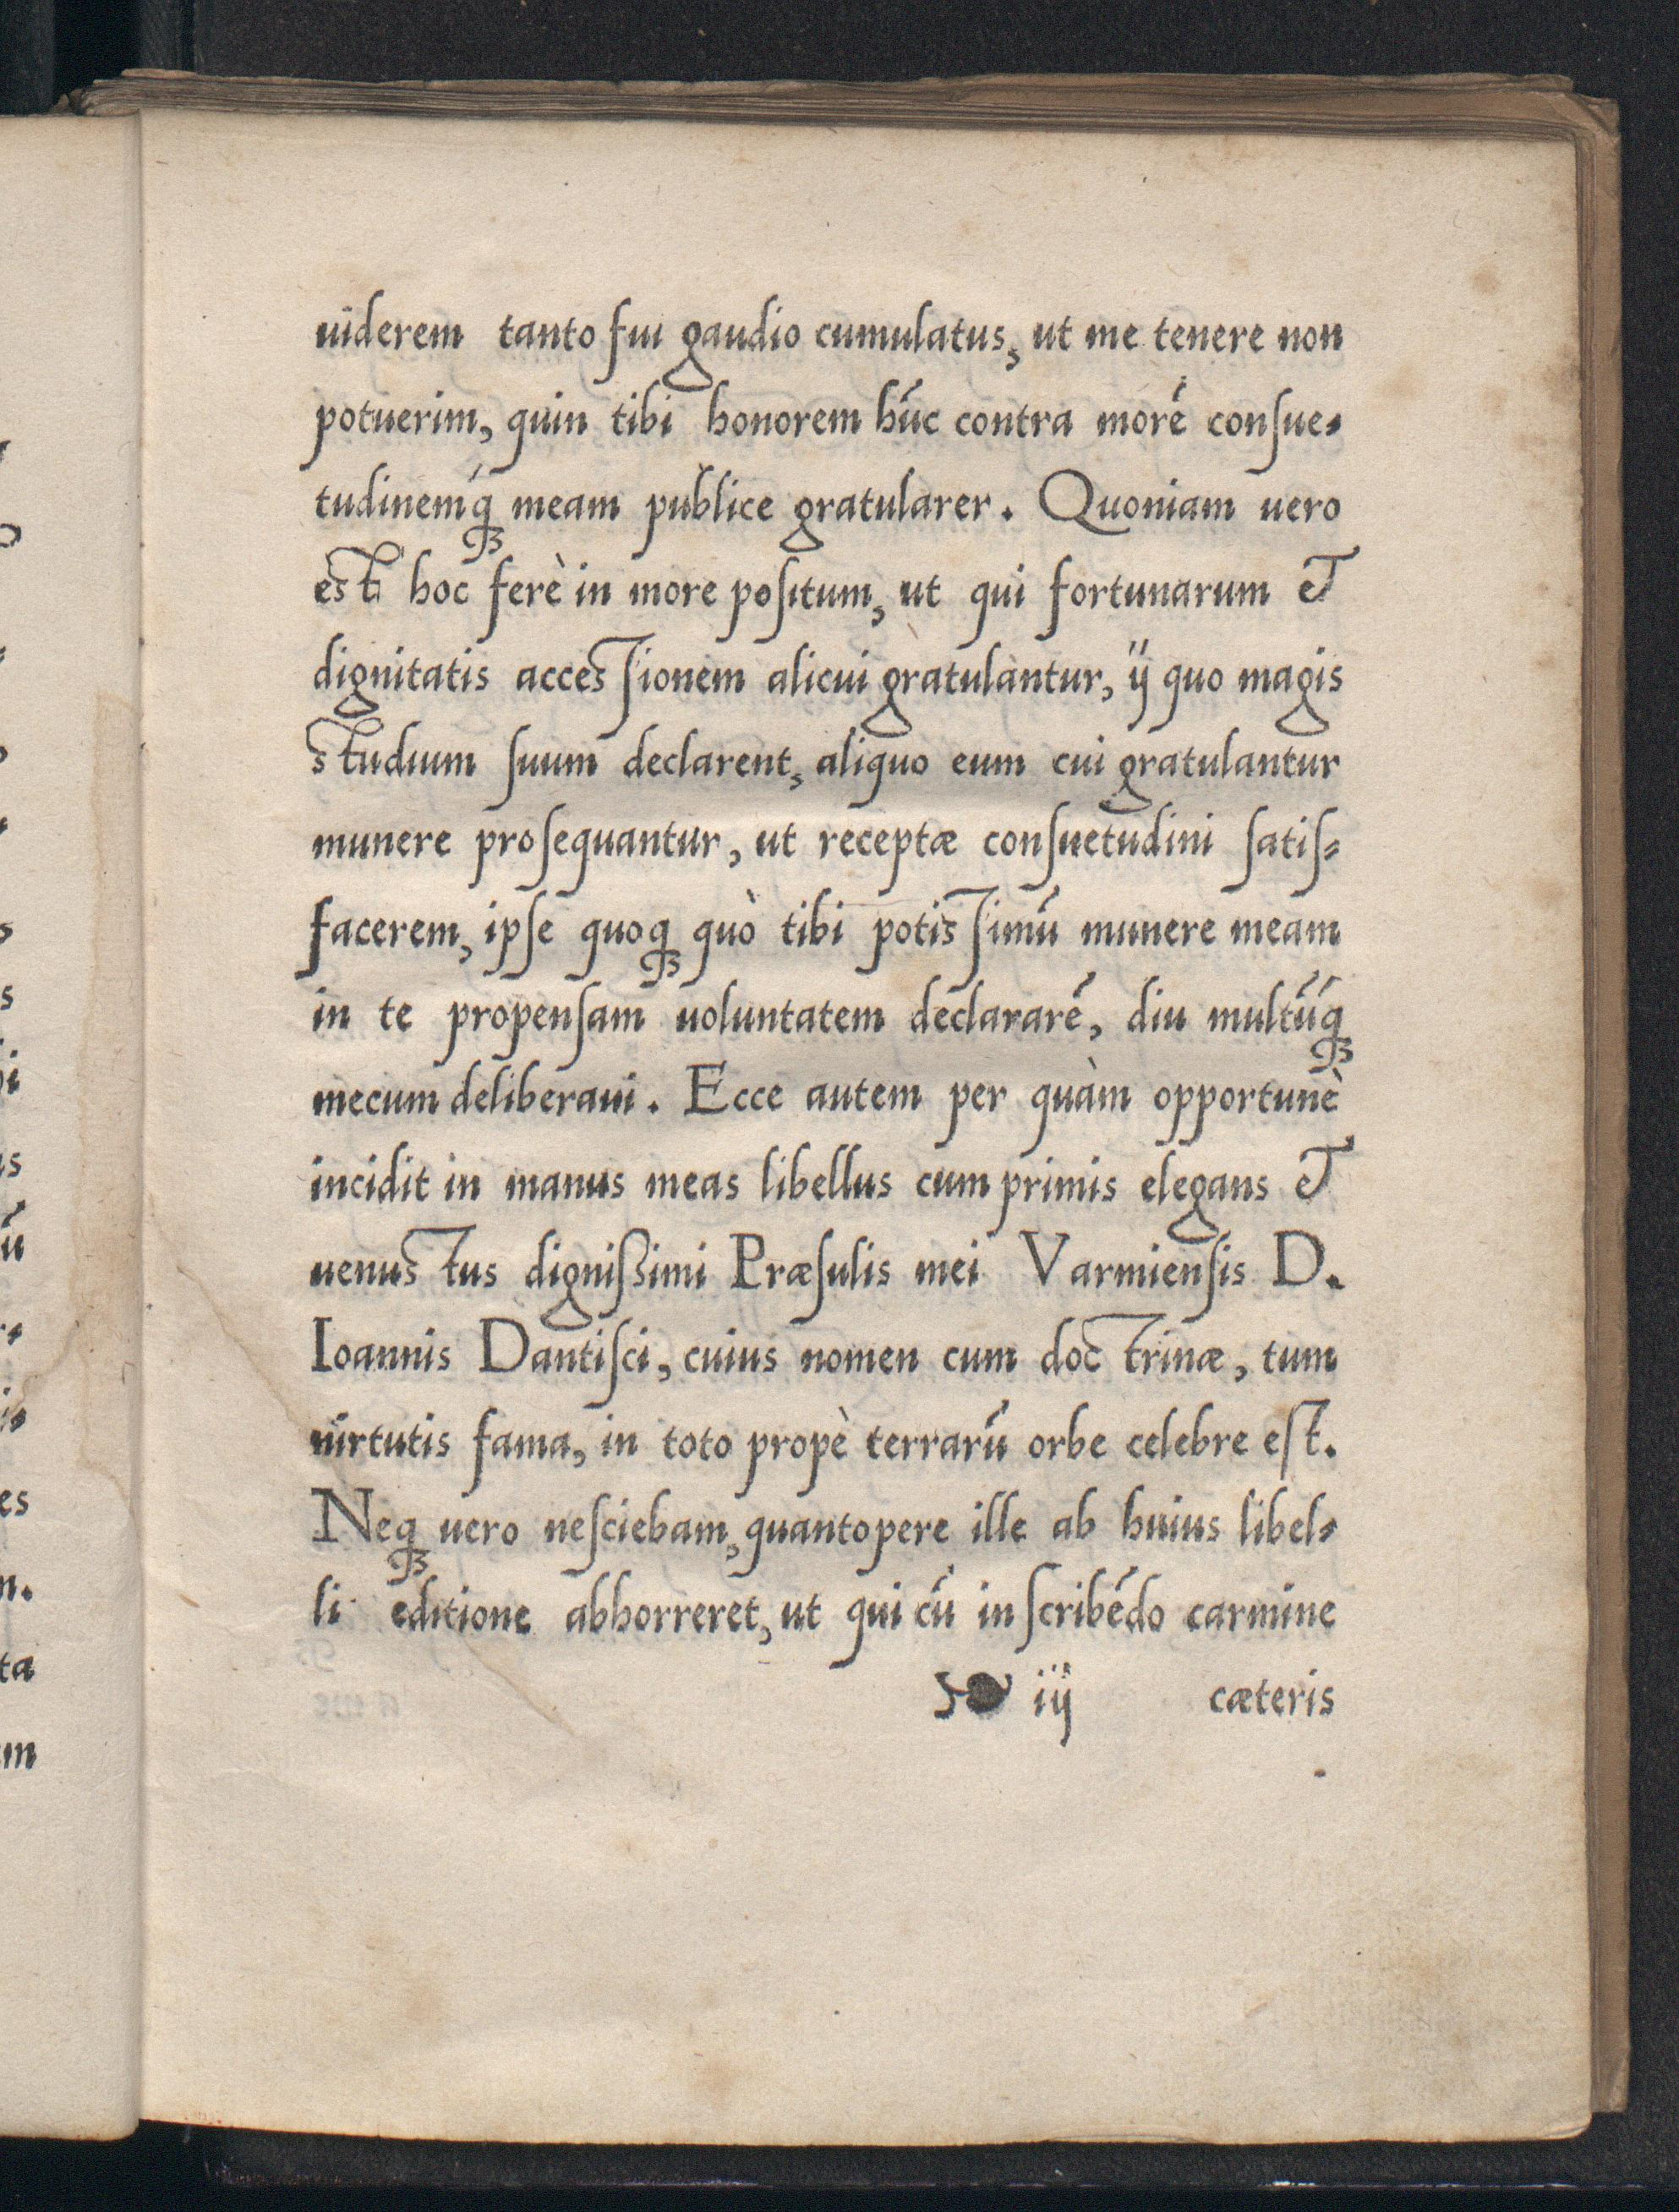 uiderem tanto fui gaudio cumulatus, ut me tenere non
potuerim, quin tibi honorem hũc contra morẽ conſue-
tudinemq́ꝫ meam publice gratularer. Quoniam uero
est hoc ferè in more poſitum, ut qui fortunarum &
dignitatis accesſionem alicui gratulantur, ij quo magis
studium ſuum declarent, aliquo eum cui gratulantur
munere proſequantur, ut receptæ conſuetudini ſatiſ-
facerem, ipſe quoqꝫ quò tibi potisſimũ munere meam
in te propenſam uoluntatem declararẽ, diu multũq́ꝫ
mecum deliberaui. Ecce autem per quàm opportunè
incidit in manus meas libellus cum primis elegans &
uenustus digniſsimi Præſulis mei Varmienſis D.
Ioannis Dantiſci, cuius nomen cum doctrinæ, tum
uirtutis fama, in toto propè terrarũ orbe celebre eſt.
Neqꝫ uero neſciebam, quantopere ille ab huius libel-
li editione abhorreret, ut qui cũ in ſcribẽdo carmine
❧ iij cæteris